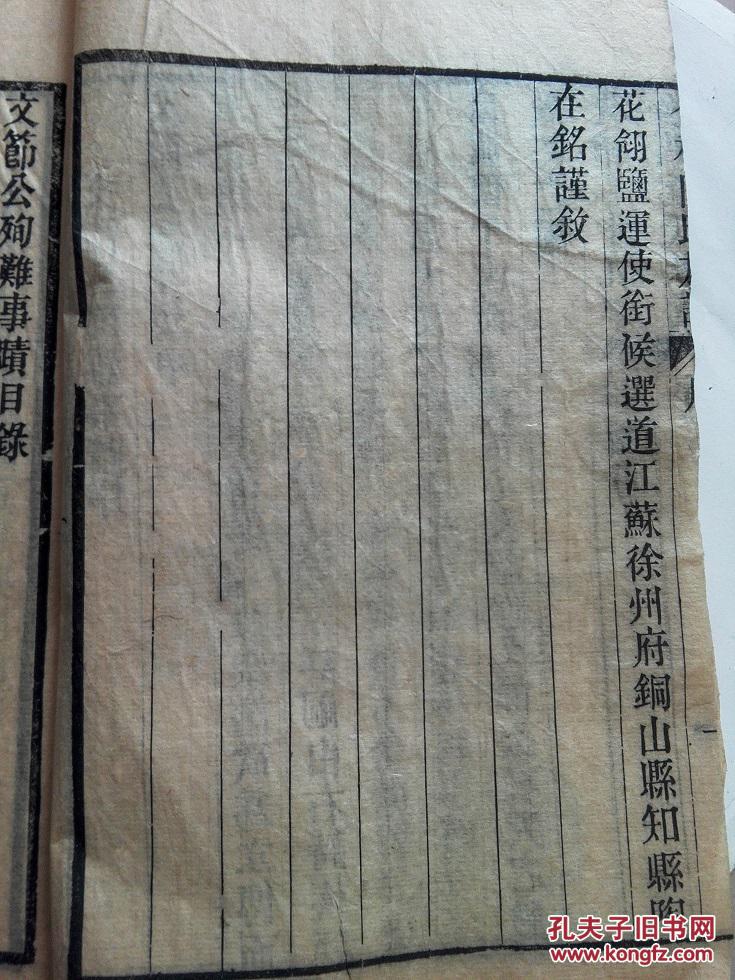 花翎鹽運使銜候選道江蘇徐州府銅山縣知縣陶
在銘謹敘
文節公殉難事蹟目錄
孔夫子旧书网
www.kongfz.com